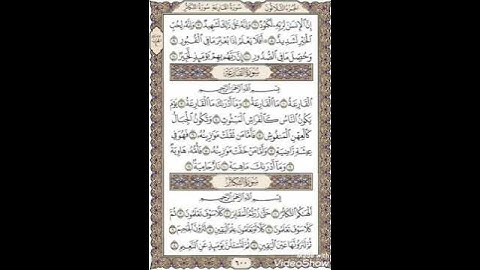 الجزء الثلاثون سورة القارعة سورة التكاثر
إن الإنسن لربه لكنود ٦ وإنه على ذلك لشهيد ٧ وإنه لحب
الخير لشديد ٨ أفلا يعلم إذا بعثر ما في القبور ٩
وحصل ما في الصدور ١٠ إن ربهم بهم يومئذ لخبير ١١
سورة القارعة
بسم الله الرحمن الرحيم
القارعة ١ ما القارعة ٢ وما أدرىك ما القارعة ٣ يوم
يكون الناس كالفراش المبثوث ٤ وتكون الجبال
كالعهن المنفوش ٥ فأما من ثقلت موزينه ٦ فهو في
عيشة راضية ٧ وأما من خفت موزينه ٨ فأمه هاوية
٩ وما أدرىك ما هيه ١٠ نار حامية ١١
سورة التكاثر
بسم الله الرحمن الرحيم
ألهىكم التكاثر ١ حتى زرتم المقابر ٢ كلا سوف تعلمون ٣ ثم
كلا سوف تعلمون ٤ كلا لو تعلمون علم اليقين ٥ لترون الجحيم ٦
ثم لترونها عين اليقين ٧ ثم لتسءلن يومئذ عن النعيم ٨
٦٠٠
Made with
VideoShow